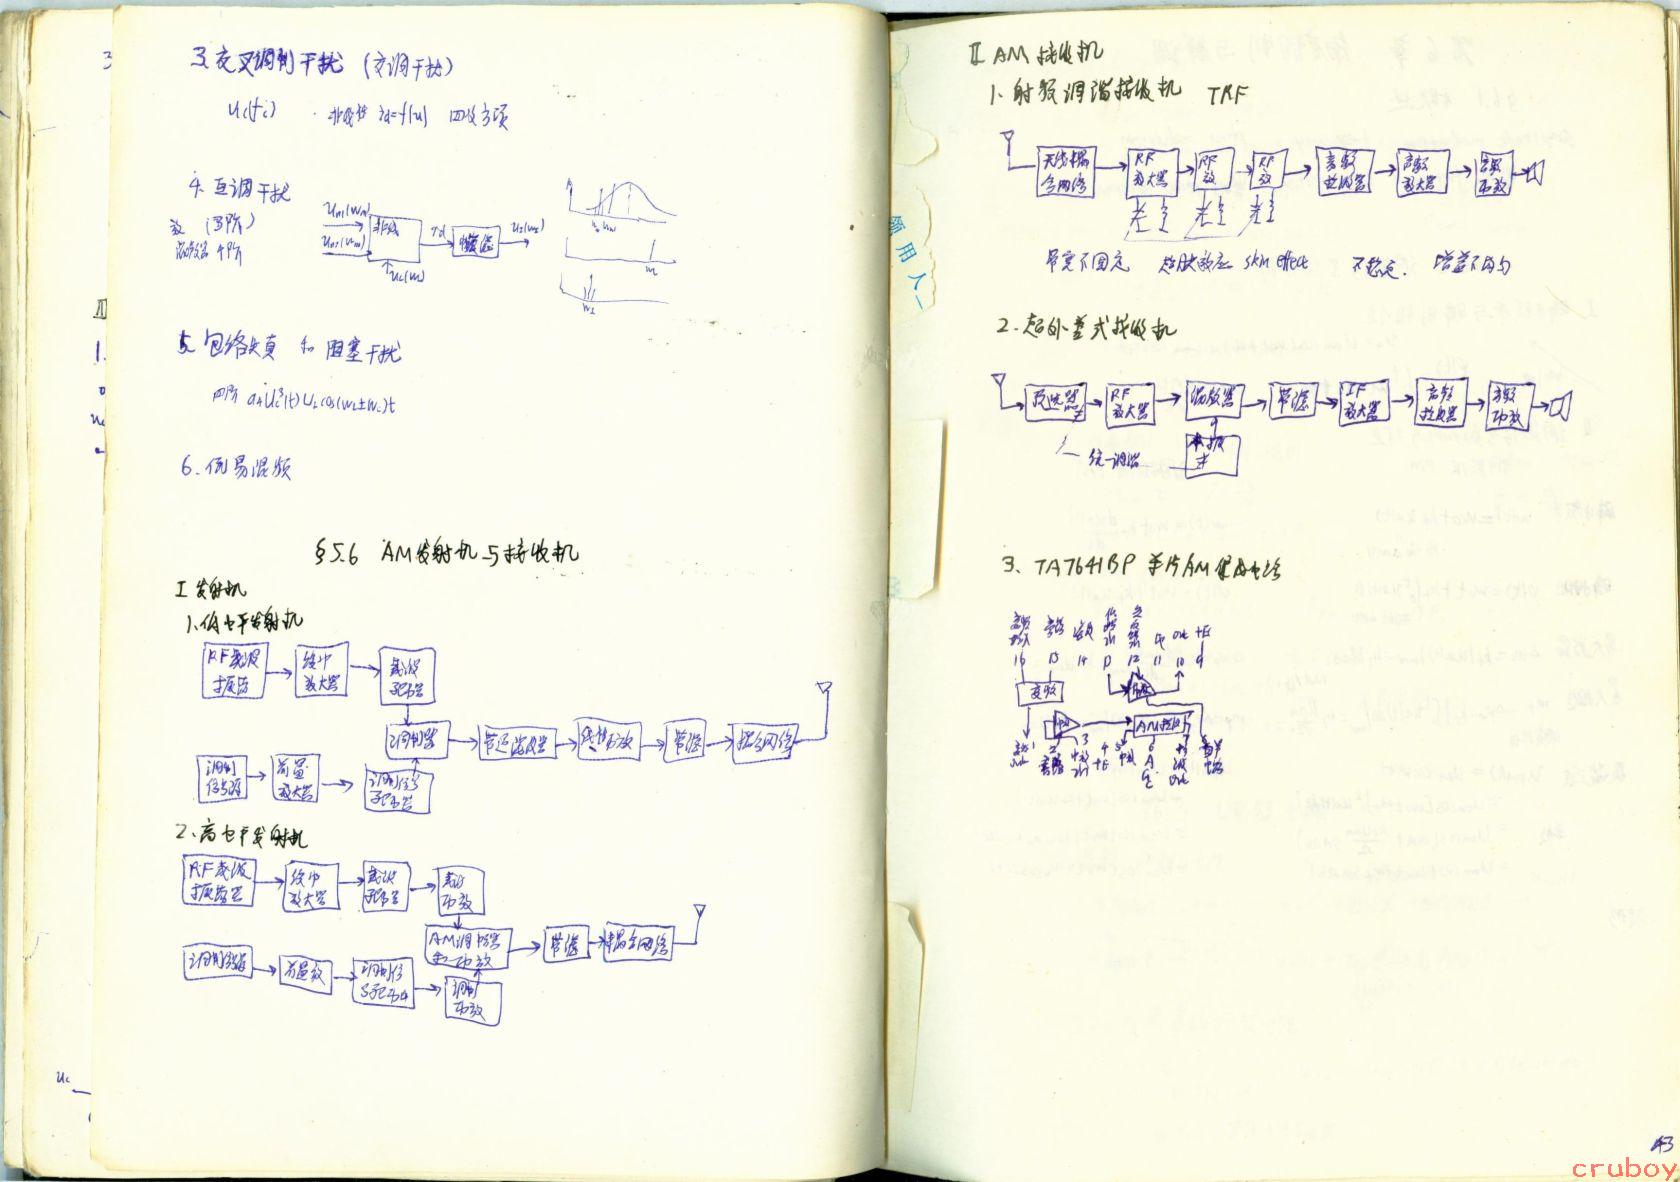 3.交叉调制干扰 (交调干扰)
Uc(fc) · 非线性 id=f(u) 四次方项
4.互调干扰
放 (3阶)
混频器 4阶
Um1(Wm) 非线 id 带滤
Um2(Wm)
UL(WL)
5.包络失真 和 阻塞干扰
四阶 a4Uc³(t)UL cos(WL±Wc)t
6.倒易混频
§5.6 AM发射机与接收机
I 发射机
1.低电平发射机
RF载波振荡器 缓冲放大器 载波驱动器
调制器 带通滤波器 线性功放 带滤 耦合网络
调制信号源 前置放大器 调制信号驱动器
2.高电平发射机
RF载波振荡器 缓冲放大器 载波驱动器 载波功放
AM调制器和功放 带滤 耦合网络
调制信号源 前置放 调制信号驱动 调制功放
II AM接收机
1.射频调谐接收机 TRF
天线耦合网络 RF放大器 RF放 RF放 音频检波器 音频放大器 音频功放
带宽不固定 趋肤效应 skin effect 不稳定. 增益不均匀
2.超外差式接收机
预选器 RF放大器 混频器 带滤 IF放大器 音频检波器 音频功放
统一调谐 本振
3. TA7641BP 单片AM集成电路
16 15 14 13 12 11 10 9
变频 功放
中放 AM检波
1 2 3 4 5 6 7 8
43
cruboy